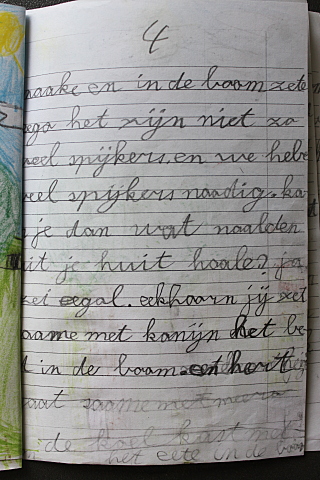 4
naake en in de boom zete
ega het zijn niet zo
veel spijkers, en we hebe
veel spijkers noodig. ka
je dan wat naalden
uit je huit hoale? ja
zei egal. eekhoorn jij zet
saame met kanijn het be
t in de boom. en hert
gaat saame met meera
de koel kast
het eete in de boom